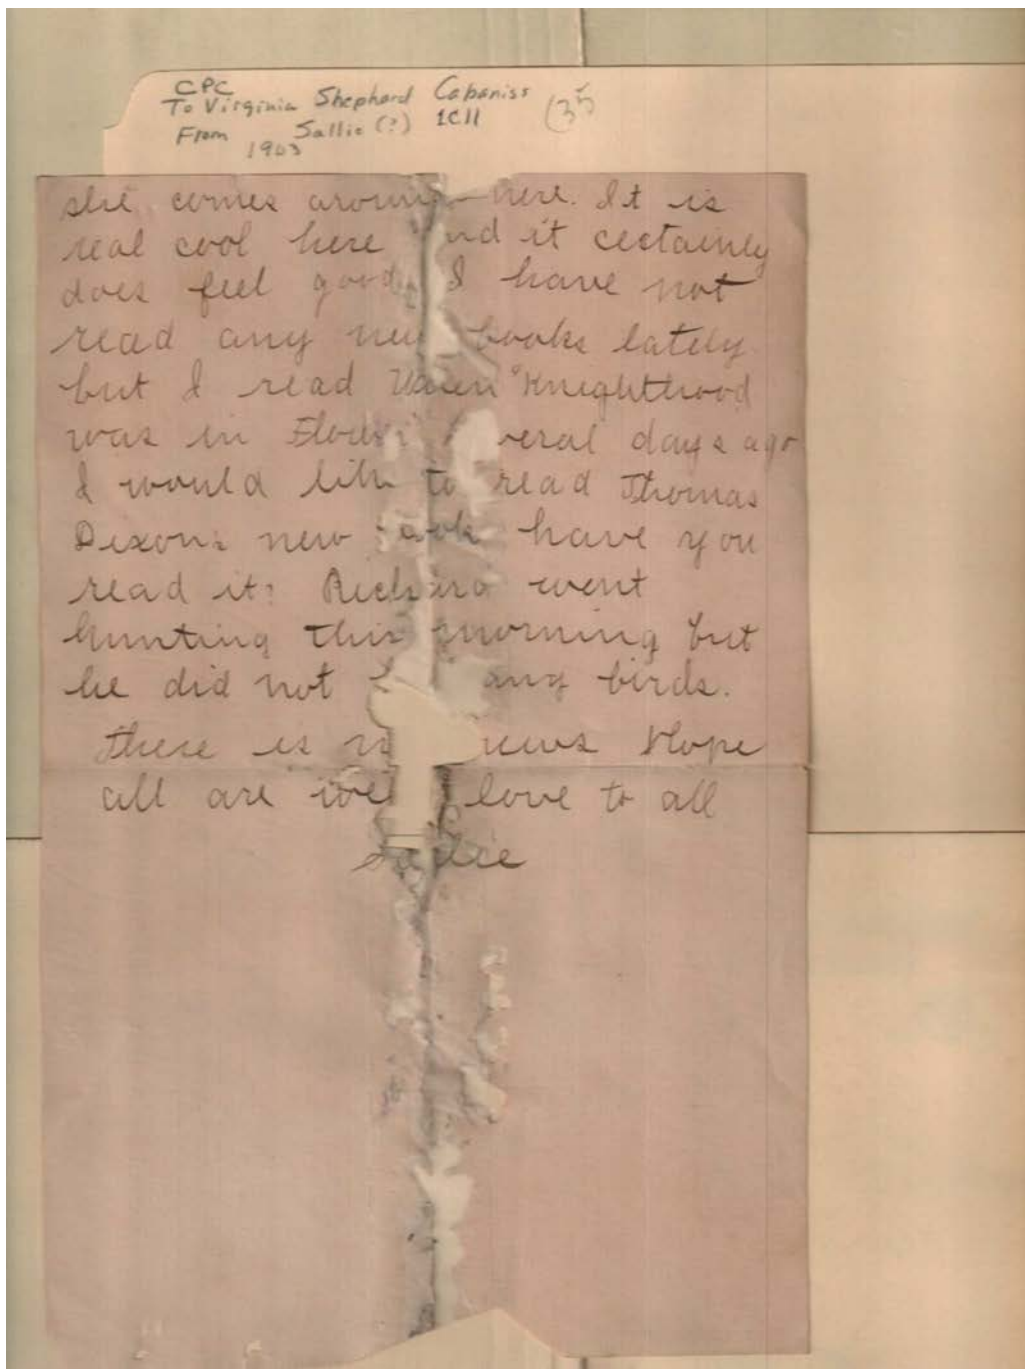 CPC
To Virginia Shephard Cabaniss
From Sallie (?) 1C11 (35)
1903
she comes around here. It is
real cool here and it certainly
does feel good, I have not
read any new books lately
but I read When "Knighthood
was in Flower several days ago
I would like to read Thomas
Dixons new book have you
read it? Richard went
hunting this morning but
he did not any birds.
There is no news Hope
all are well love to all
Sallie